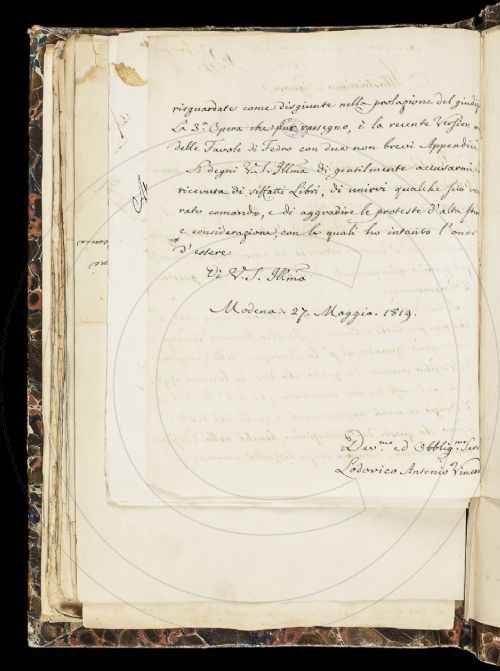 risguardate come disgiunte nella prolazione del giudi
La 3.ª Opera che pur rassegno, è la recente Version
delle Favole di Fedro con due non brevi Appendici
Si degni V. S. Illma di gentilmente accusarmi
ricevuta di siffatti Libri, di unirvi qualche suo ve
rato comando, e di aggradire le proteste d'alta sti
e considerazione, con le quali ho intanto l'onor
d'essere
Di V. S. Illma
Modena. 27. Maggio. 1819.
Dev.mo ed Obblig.mo Serv
Lodovico Antonio Vince